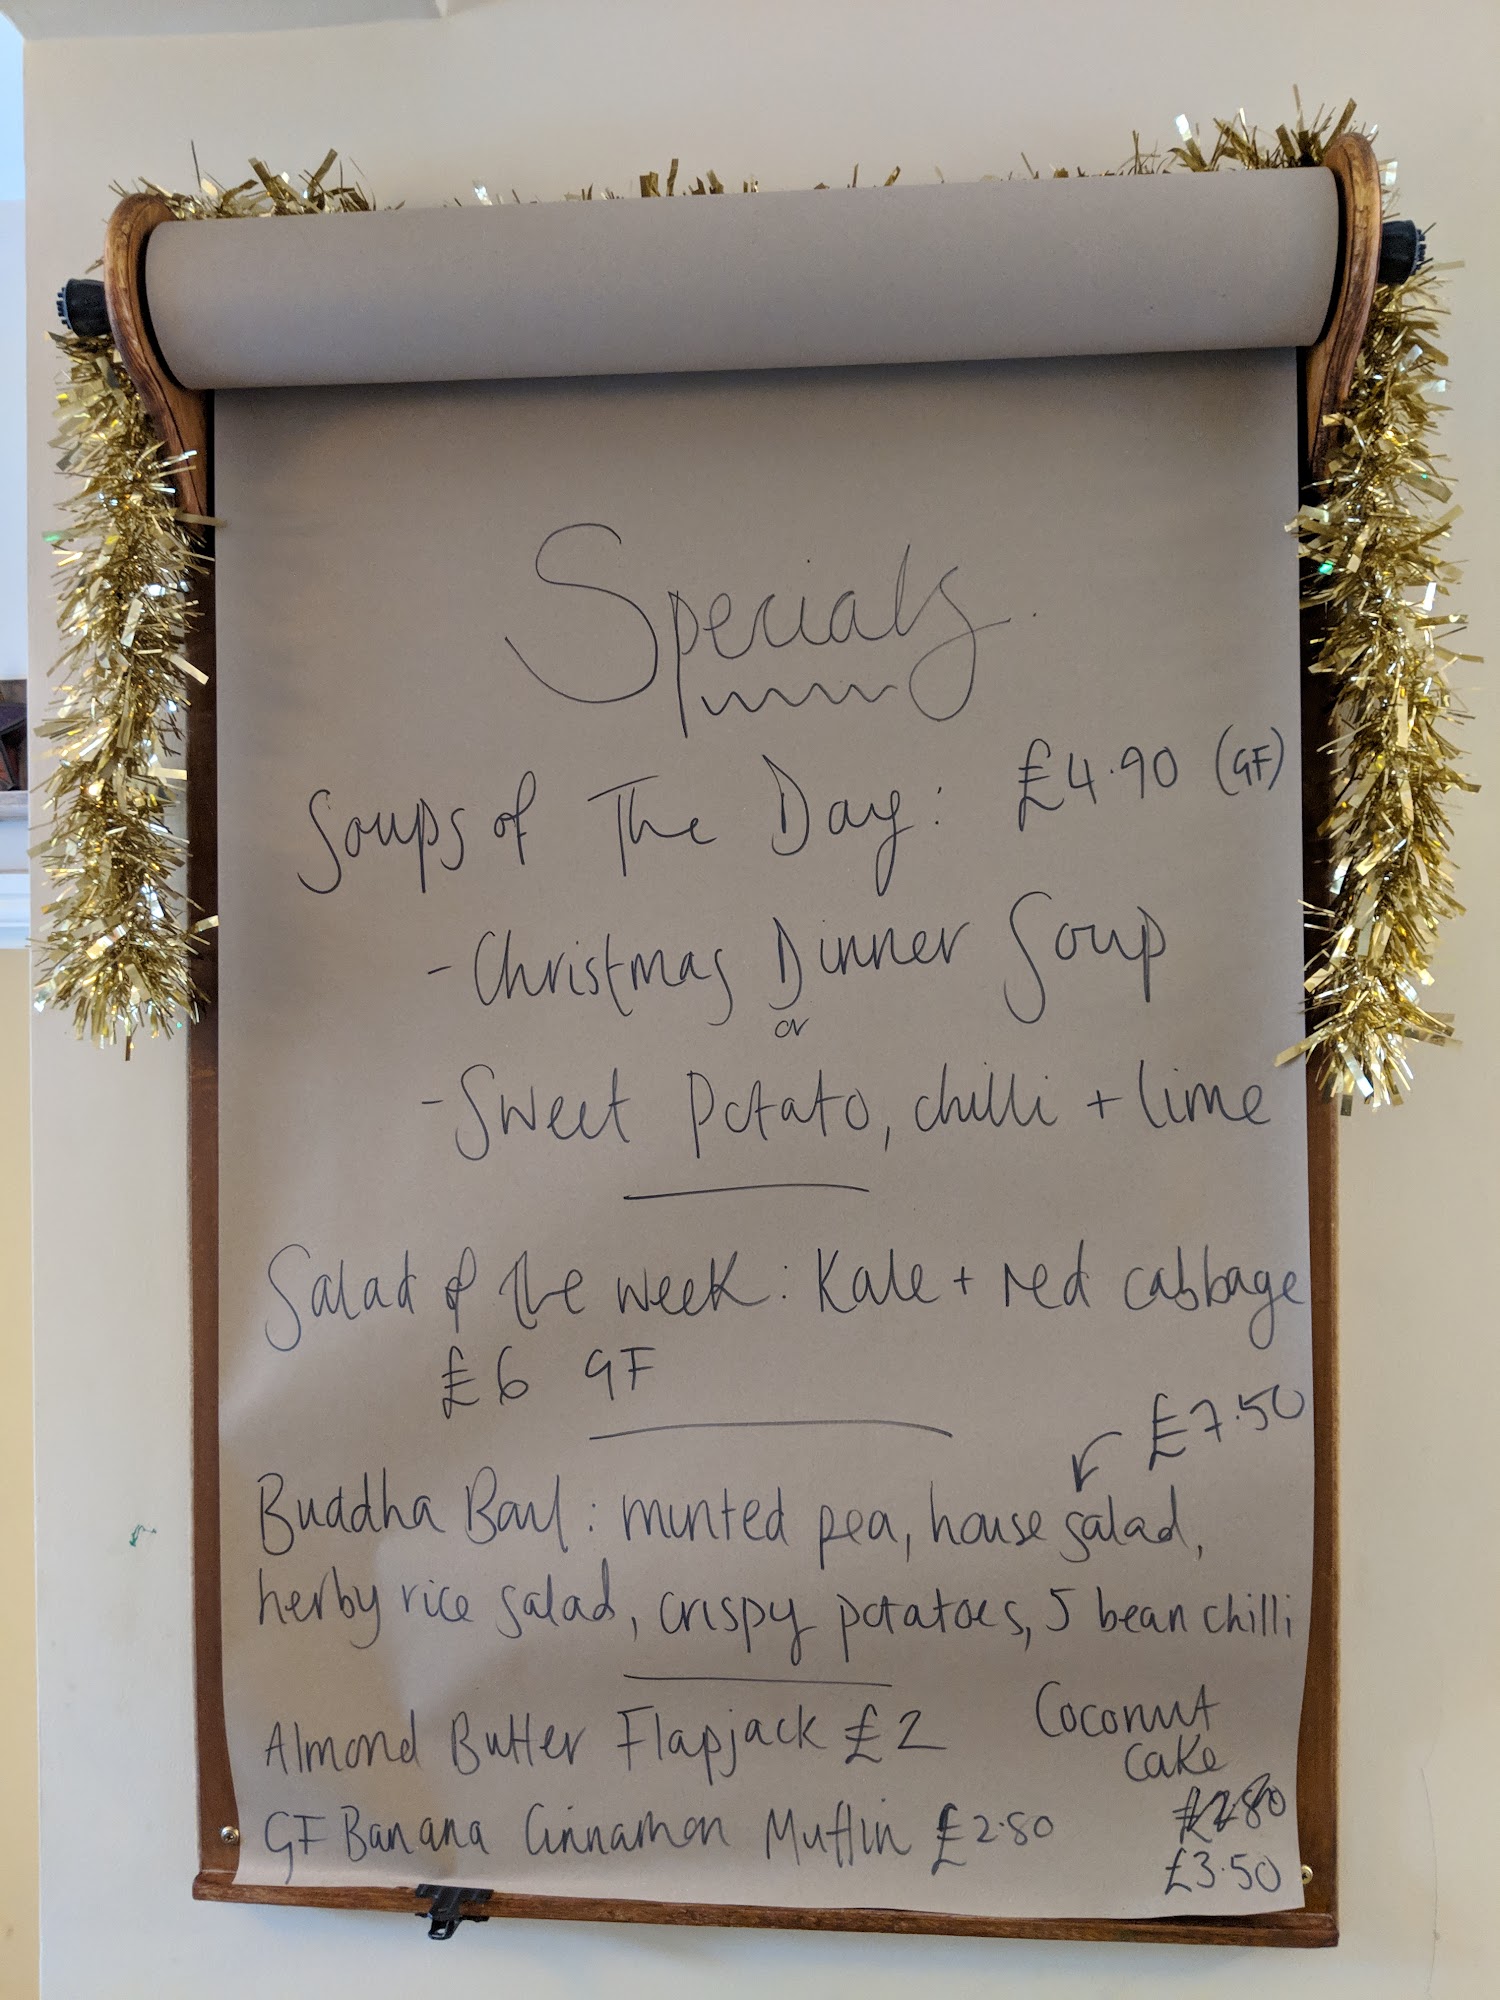 Specials
Soups of The Day: £4.90 (GF)
- Christmas Dinner Soup
or
- Sweet Potato, chilli + lime
Salad of the week: Kale + red cabbage
£6 GF
£7.50
Buddha Bowl: minted pea, house salad,
herby rice salad, crispy potatoes, 5 bean chilli
Almond Butter Flapjack £2
GF Banana Cinnamon Muffin £2.80
Coconut
Cake
£2.80
£3.50